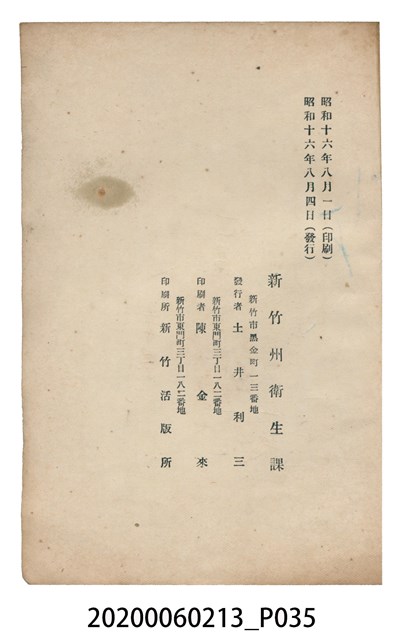 昭和十六年八月一日(印刷)
昭和十六年八月四日(發行)
新竹州衛生課
新竹市黑金町一三番地
發行者 土井利三
新竹市東門町三丁目一八二番地
印刷者 陳金來
新竹市東門町三丁目一八二番地
印刷所 新竹活版所
20200060213_P035